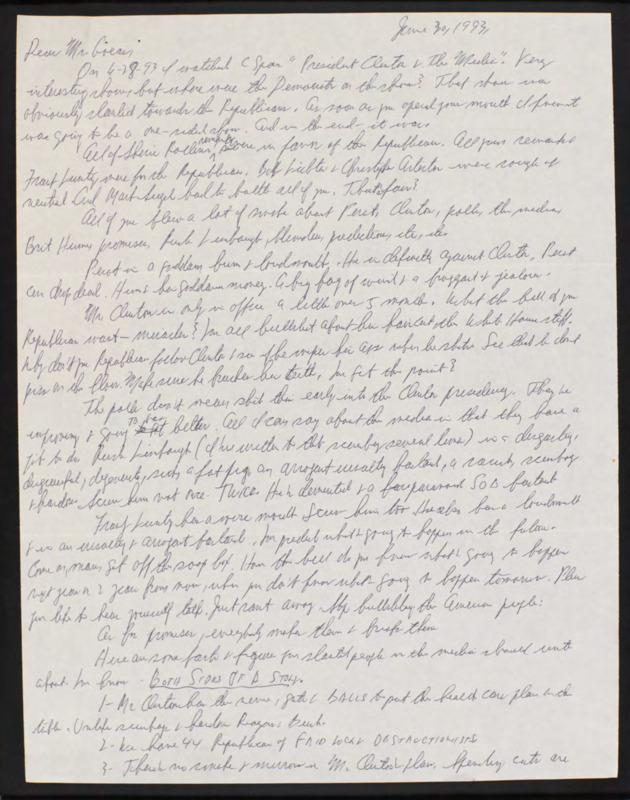 June 30, 1993
Dear Mr.
On 6-28-93 I watched C Span "President Clinton & The Media". Very
interesting show, but where were the Democrats on the show? That show was
obviously slanted towards the Republicans. As soon as you opened your mouth I knew it
was going to be a one-sided show. And in the end it was.
All of Sherie Rollins remarks were in favor of the Republican. All your remarks &
Frank Luntz were for the Republican. Bob Lichter & Christopher were sort of
neutral and had to battle all of you. That's fair?
All of you blew a lot of smoke about Perot, Clinton, polls, the media,
Brit Hume, promises, Rush Limbaugh, predictions, etc, etc
Perot is a goddam bum & loudmouth. He is definitely against Clinton. Perot
can drop dead. He & his goddamn money. A big bag of wind & a braggart & jealous.
Mr Clinton is only in office a little over 5 months. What the hell do you
Republican want - miracles? You all bullshit about his haircut, the White House staff.
Why don't you Republican follow Clinton & see if he wipes his ass when he shits. See that he don't
piss on the floor. Make sure he brushes his teeth. You get the point?
The polls don't mean shit this early into the Clinton presidency. They're
improving & going to get better. All I can say about the media is that they have a
job to do. Rush Limbaugh (I've written to that scumbag several times) is a disgusting,
disgraceful, degenerate, sick, a fat pig, an arrogant unsightly bastard, a racist, scumbag
& hardon. Screw him not once - Twice. He's demented & a SOB bastard
Frank Luntz has a mouth. Screw him too. He also has a loudmouth
& is an unsightly & arrogant bastard. You predict what's going to happen in the future.
Come on, man, get off the soap box. How the hell do you know what's going to happen
next year or 2 years from now, when you don't know what's going to happen tomorrow.
You like to hear yourself talk. Just rant away. Stop bullshitting the American people.
As for promises, everybody makes them & breaks them
Here are some facts & figures you slanted people in the media should write
about. You know - BOTH SIDES OF A STORY.
1- Mr Clinton has the nerve, guts & BALLS to put the health care plan on the
table. Unlike scumbags & hardon Reagan & Bush.
2- We have 44 Republican OBSTRUCTIONISTS
3- There's no smoke & mirrors in Mr. Clinton's plan. Spending cuts are